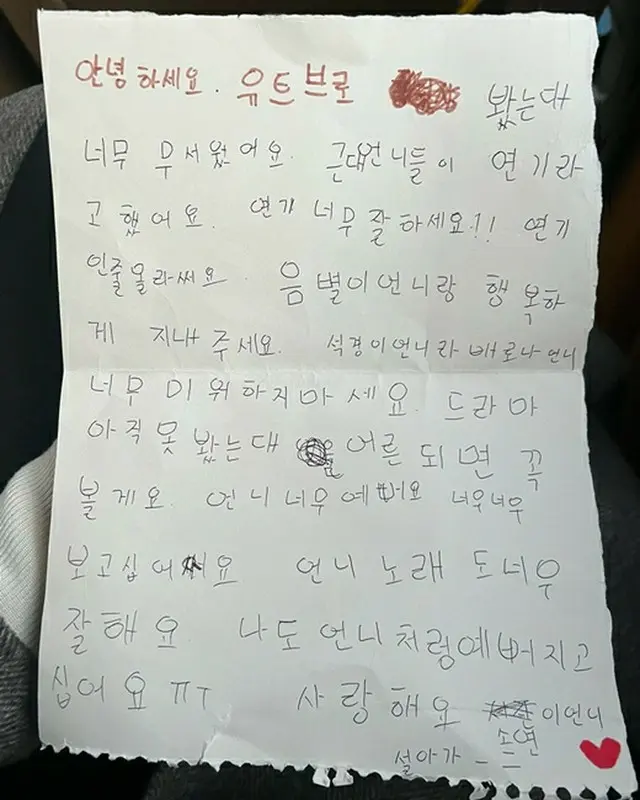 안녕하세요. 유트브로 봤는대
너무 무서웠어요. 근대언니들이 연기라
고 했어요. 연기 너무잘하세요!! 연기
인줄몰라써요. 음 별이언니랑 행복하
게 지내주세요. 석경이언니라 배로나 언니
너무 미워하지마세요. 드라마
아직못 봤는대 어른되면 꼭
볼게요. 언니 너무예뻐요 너무너무
보고십어요 언니 노래 도너무
잘해요 나도 언니처렁예뻐지고
십어요 ㅠㅜ 사랑해요 이언니
설아가 - 소연